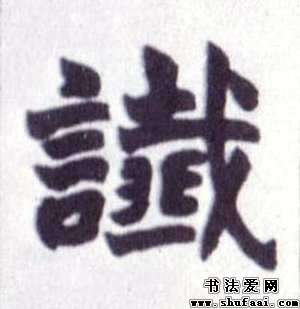 讖
书法爱网
www.shufaai.com